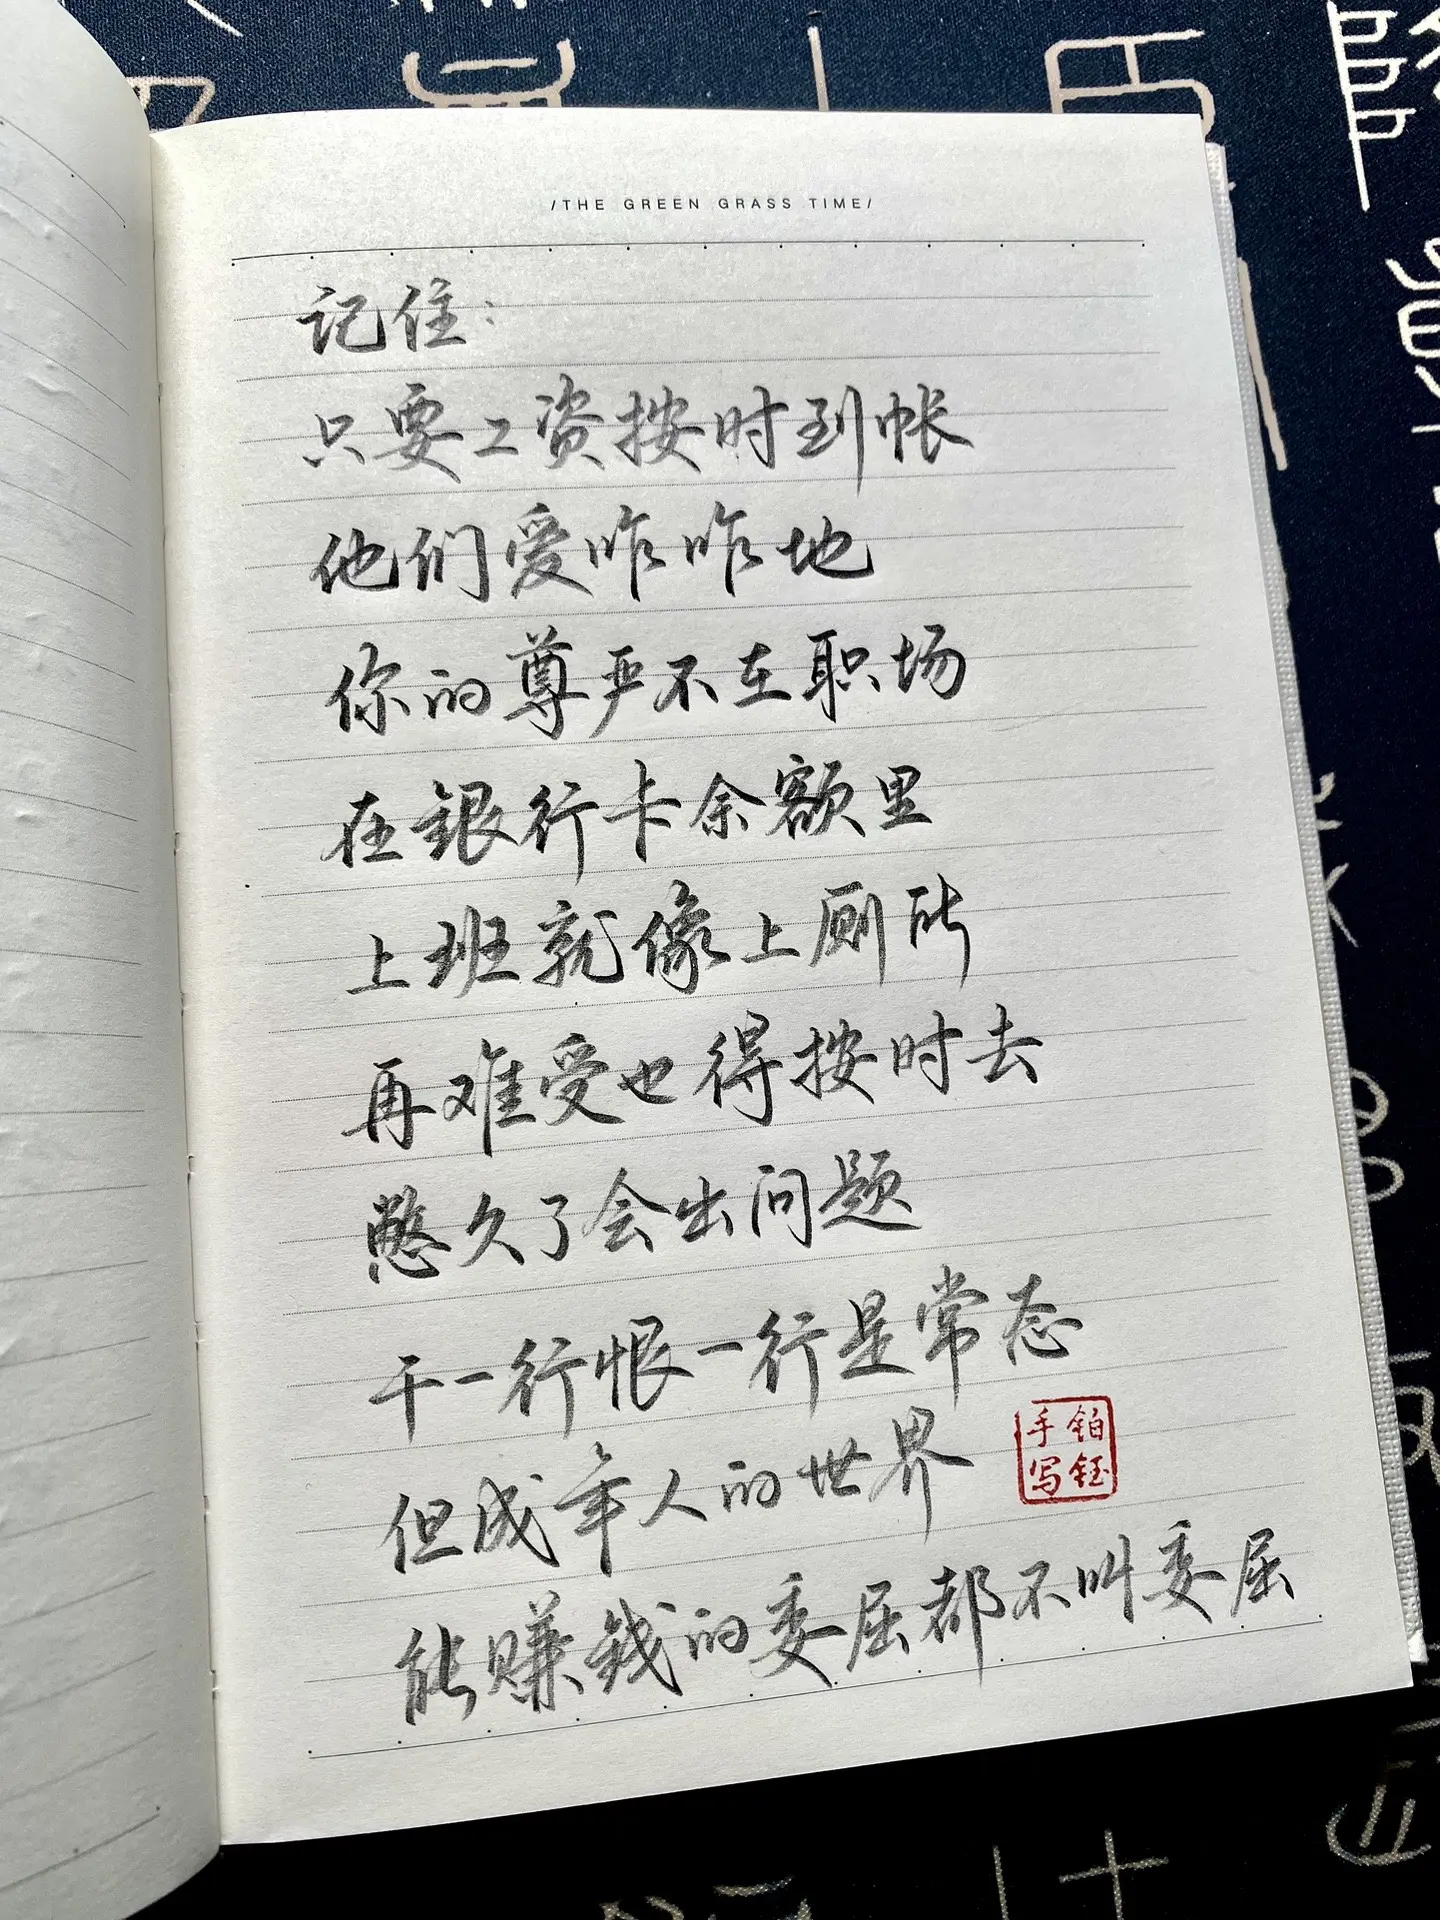 /THE GREEN GRASS TIME/
记住:
只要工资按时到帐
他们爱咋咋地
你的尊严不在职场
在銀行卡余额里
上班就像上厕所
再难受也得按时去
憋久了会出问题
干一行恨一行是常态
但成年人的世界
能赚钱的委屈都不叫委屈
铂钰
手写